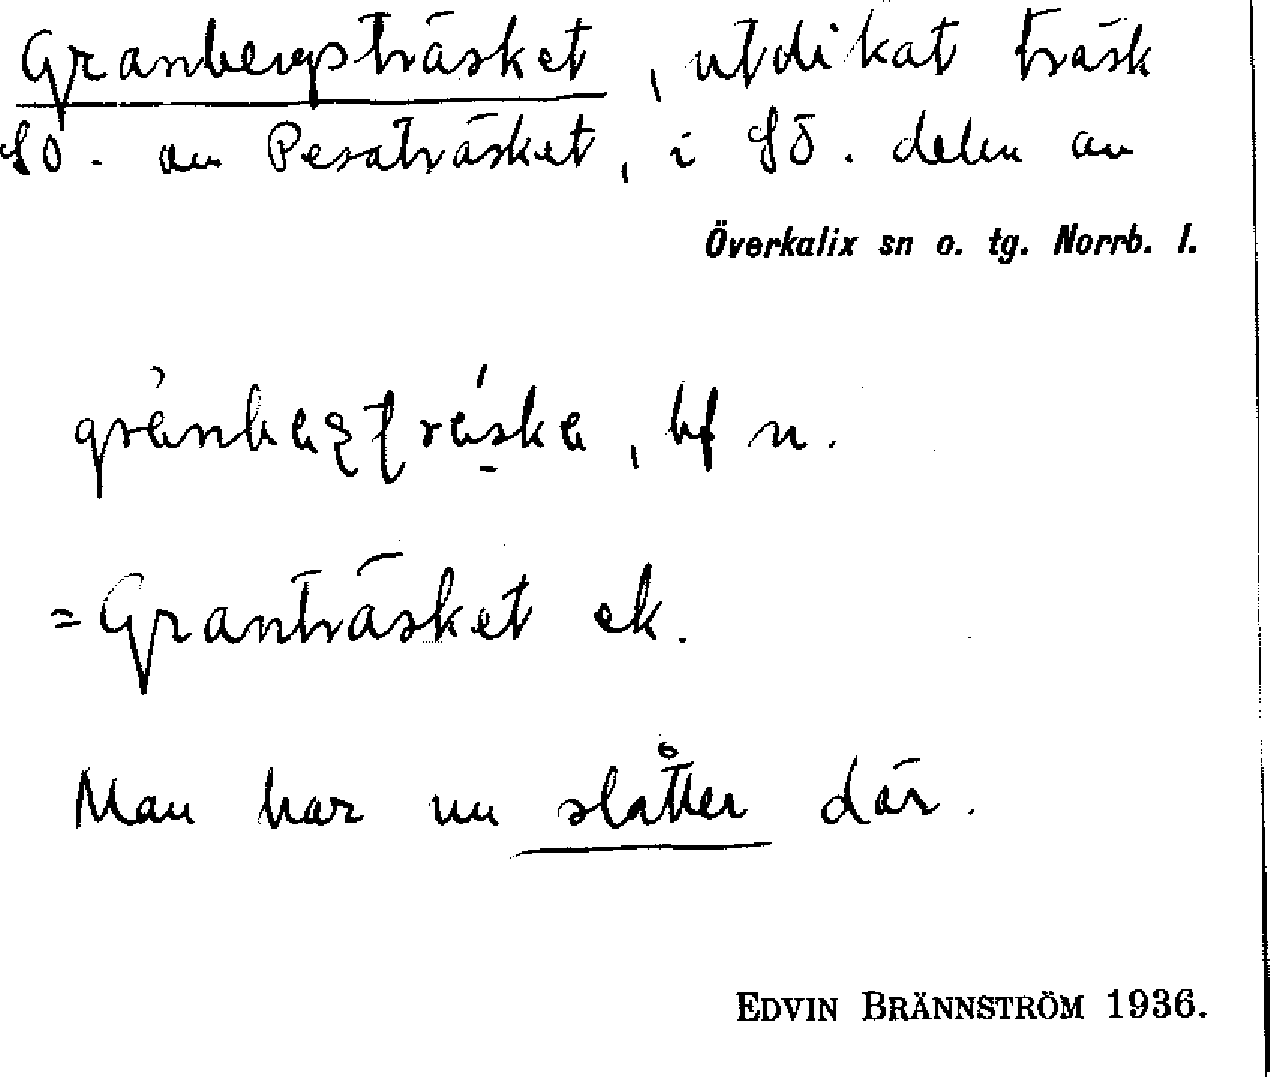 Granbergsträsket, utdikat träsk
SÖ. av Pesaträsket, i SÖ. delen av
Överkalix sn o. tg. Norrb. l.
bf n.
=Granträsket ek.
Man har nu slåtter där.
EDVIN BRÄNNSTRÖM 1936.